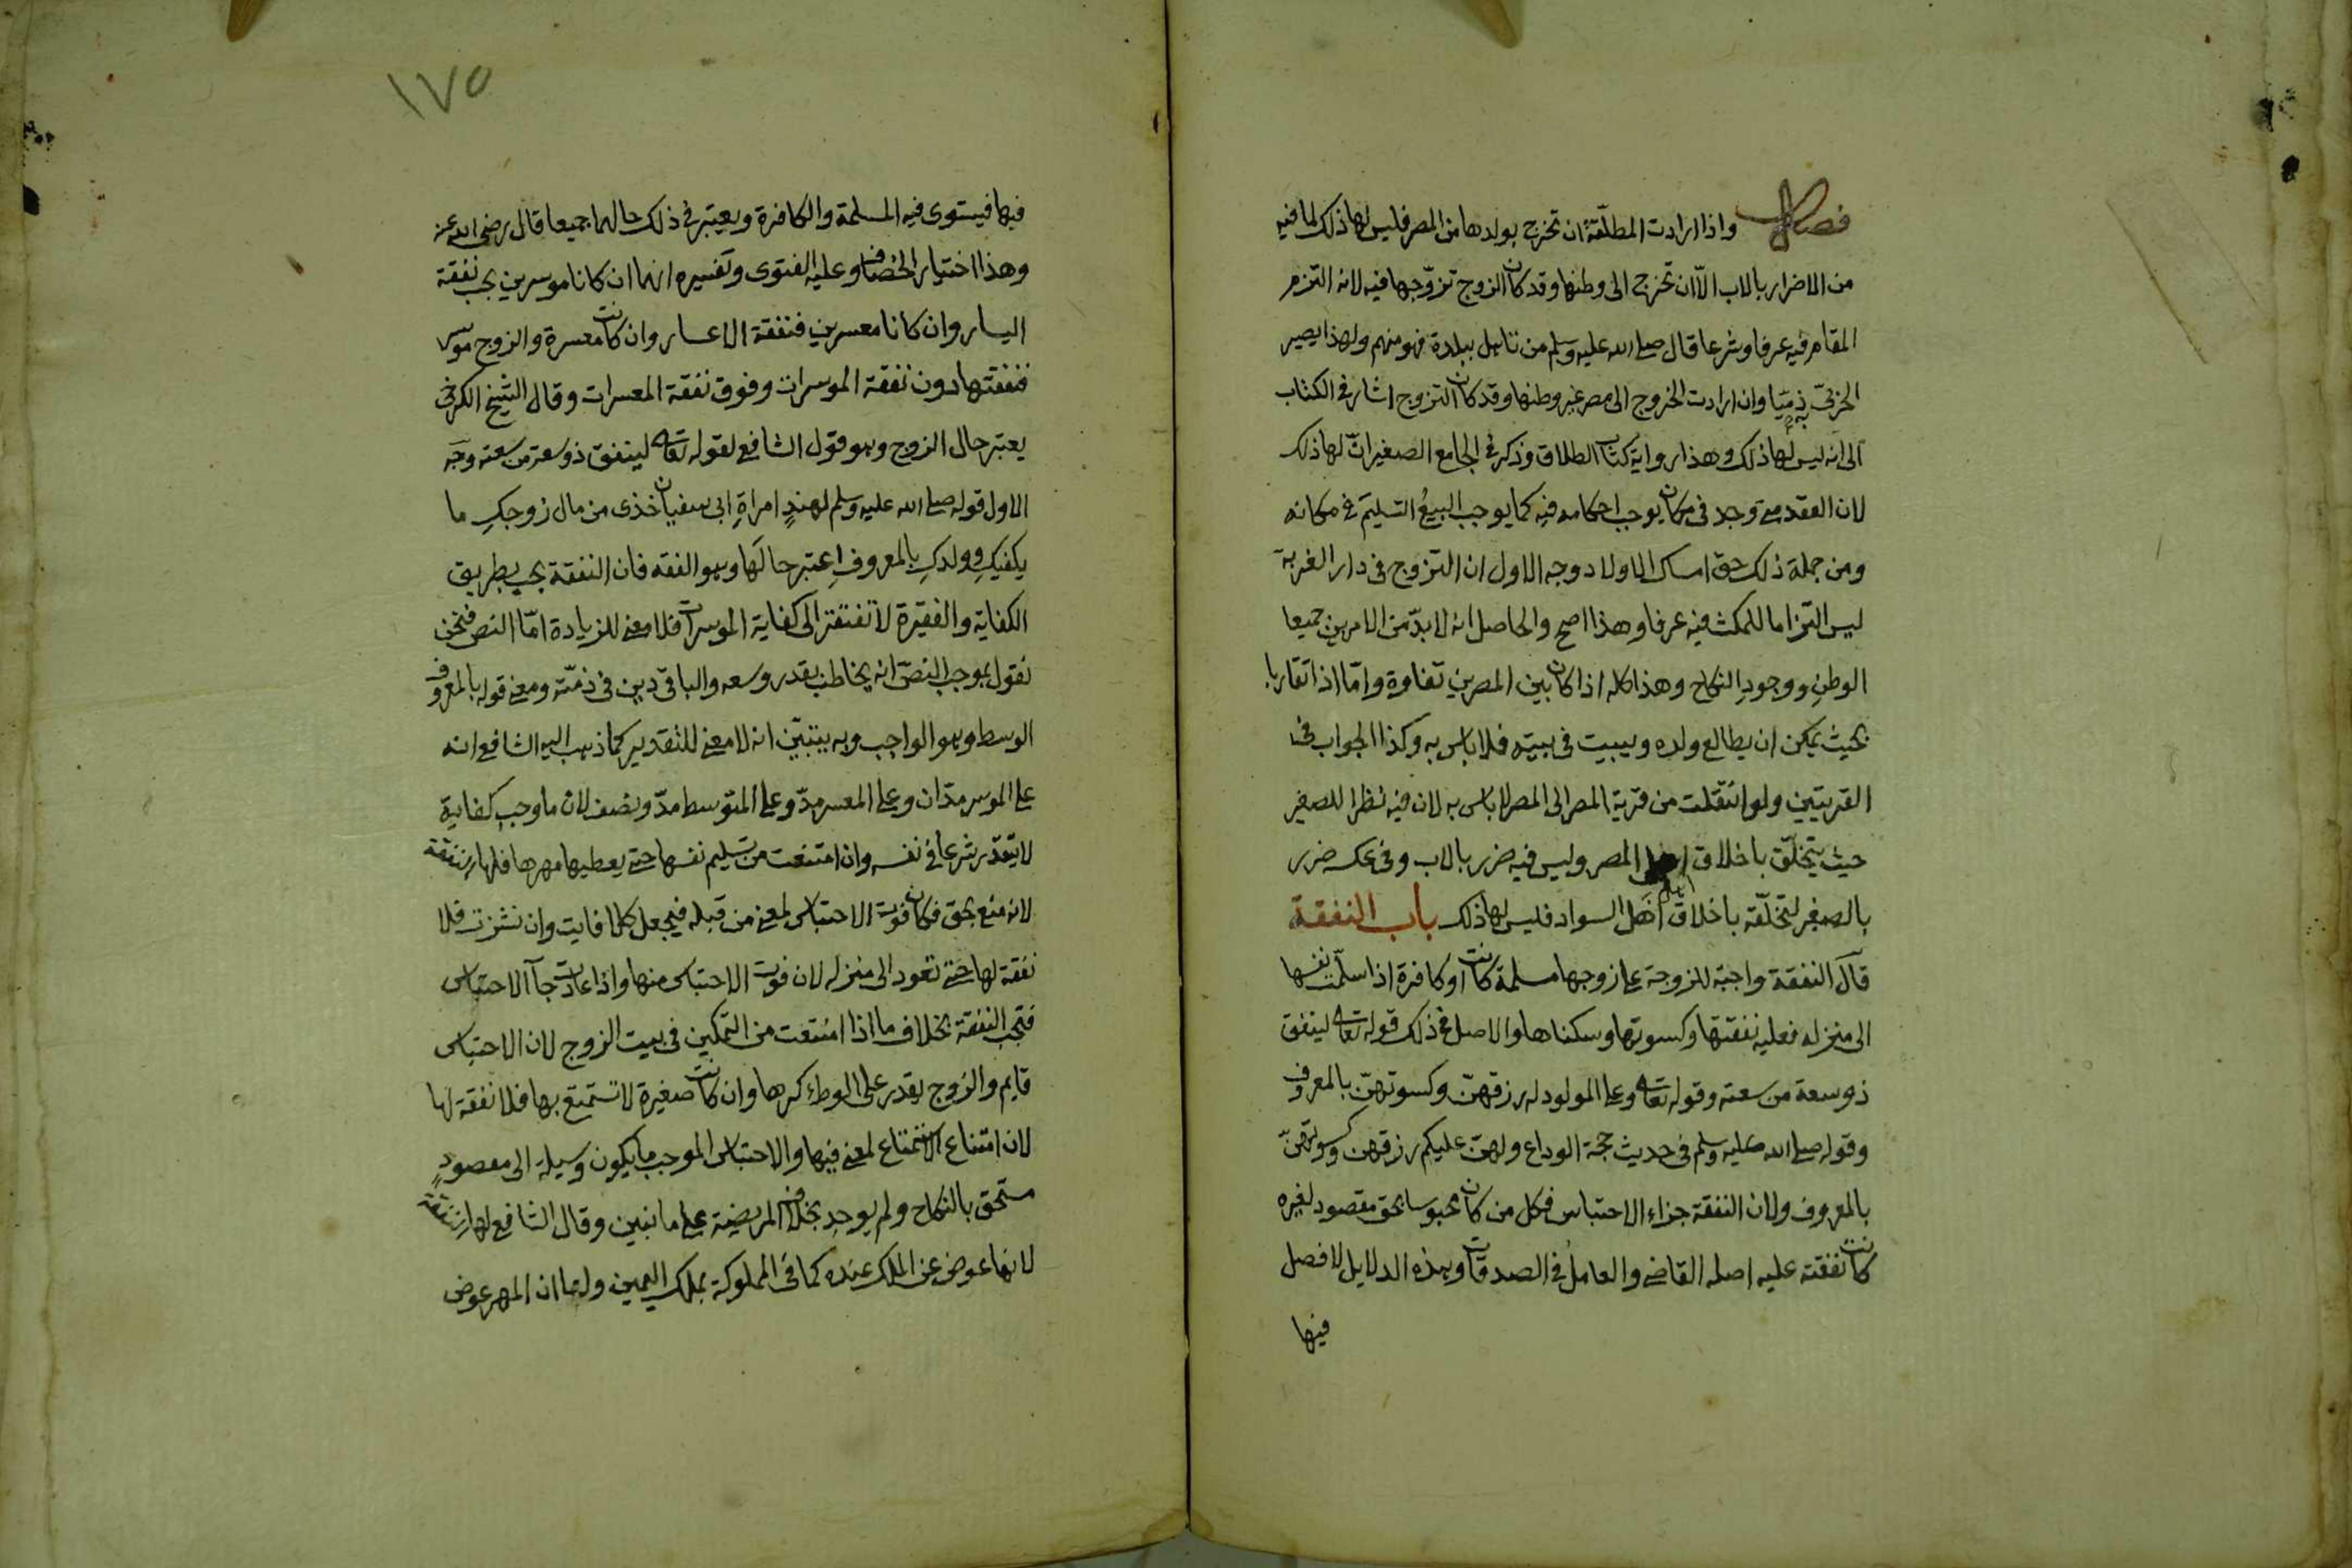 فصل واذا ارادت المطلّقة ان تخرج بولدها من المصر فليس لها ذلك لما فيه
من الاضرار بالاب الّا ان تخرج الى وطنها وقد كان الزوج تزوّجها فيه لانه التزم
المقام فيه عرفا وشرعا قال صلى الله عليه وسلم من تاهل ببلدة فهو منهم ولهذا يصير
الحربىّ به ذميّا وان ارادت الخروج الى مصر غير وطنها وقد كان التزوج اشار فى الكتاب
الى انه ليس لها ذلك وهذا رواية كتاب الطلاق وذكر فى الجامع الصغير انّ لها ذلك
لان العقد متى وجد فى مكان يوجب احكامه فيه كما يوجب البيعُ التسليمَ فى مكانه
ومن جملة ذلك حق امساك الاولاد وجه الاول ان التزوج فى دار الغربة
ليس التزاما للمكث فيه عرفا وهذا اصح والحاصل انه لا بدّ من الامرين جميعا
الوطنِ ووجودِ النكاح وهذا كله اذا كان بين المصرين تفاوت وامّا اذا تقاربا
بحيث يمكن ان يطالع ولده ويبيت فى بيته فلا باس به وكذا الجواب فى
القريتين ولو انتقلت من قرية المصر الى المصر لا باس به لان فيه نظرا للصغير
حيث يتخلّق باخلاق اهل المصر وليس فيه ضرر بالاب وفى عكسه ضرر
بالصغير لتخلّقه باخلاق اهل السواد فليس لها ذلك باب النفقة
قال النفقة واجبة للزوجة على زوجها مسلمة كانت او كافرة اذا سلّمت نفسها
الى منزله فعليه نفقتها وكسوتها وسكناها والاصل فى ذلك قوله تعالى لينفق
ذو سعة من سعته وقوله تعالى وعلى المولود له رزقهنّ وكسوتهنّ بالمعروف
وقوله صلى الله عليه وسلم فى حديث حجة الوداع ولهنّ عليكم رزقهن وكسوتهنّ
بالمعروف ولان النفقة جزاء الاحتباس فكل من كان محبوسا بحق مقصود لغيره
كانت نفقته عليه اصله القاضى والعاملُ فى الصدقات وهذه الدلايل لا فصل
فيها
١٧٥
فيها فيستوى فيه المسلمة والكافرة ويعتبر فى ذلك حالهما جميعا قال رضى الله عنه
وهذا اختيار الخصاف وعليه الفتوى وتفسيره انهما ان كانا موسرين يجب نفقة
اليسار وان كانا معسرين فنفقة الاعسار وان كانت معسرة والزوج موسر
فنفقتها دون نفقة الموسرات وفوق نفقة المعسرات وقال الشيخ الكرخى
يعتبر حال الزوج وهو قول الشافعى لقوله تعالى لينفق ذو سعة من سعته وجه
الاول قوله صلى الله عليه وسلم لهندٍ امراةِ ابى سفيان خذى من مال زوجكِ ما
يكفيكِ وولدكِ بالمعروف اعتبر حالَها وهو الفقه فان النفقة يجب بطريق
الكفاية والفقيرة لا تفتقر الى كفاية الموسرات فلا معنى للزيادة امّا النص فنحن
نقول بموجب النصّ انه يخاطب بقدر وسعه والباقى دين فى ذمّته ومعنى قوله بالمعروف
الوسط وهو الواجب وبه يتبيّن انه لا معنى للتقدير كما ذهب اليه الشافعى انه
على الموسر مدّان وعلى المعسر مدّ وعلى المتوسط مدّ ونصف لان ما وجب كفاية
لا يتقدّر شرعا فى نفسه وان امتنعت من تسليم نفسها حتى يعطيها مهرها فلها النفقة
لانه منع بحق فكان فوت الاحتباس لمعنى من قبله فيجعل كلا فايت وان نشزت فلا
نفقة لها حتى تعود الى منزله لان فوت الاحتباس منها واذا عادت جآ الاحتباس
فتجب النفقة بخلاف ما اذا امتنعت من التمكين فى بيت الزوج لان الاحتباس
قايم والزوج يقدر على الوطء كرها وان كانت صغيرة لا تستمتع بها فلا نفقة لها
لان امتناع الاستمتاع لمعنى فيها والاحتباس الموجب ما يكون وسيلة الى مقصودٍ
مستحق بالنكاح ولم يوجد بخلاف المريضة على ما نبين وقال الشافعى لها النفقة
لانها عوض عن الملك عنده كما فى المملوكة بملك اليمين ولنا ان المهر عوض